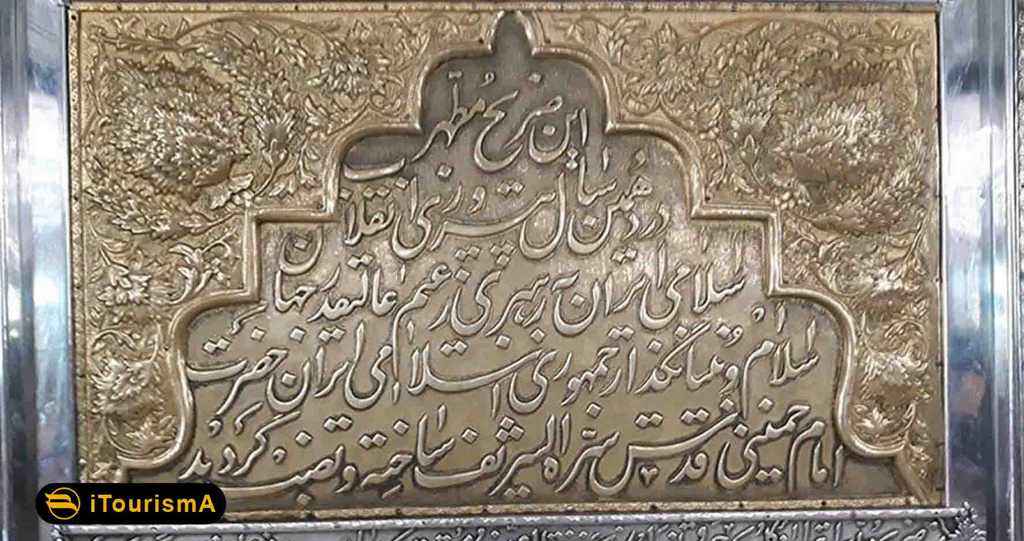 این ضریح مطهر
در دهمین سال پیروزی انقلاب
اسلامی ایران به رهبری زعیم عالیقدر جهان
اسلام و بنیانگذار جمهوری اسلامی ایران حضرت
امام خمینی قدس سره الشریف ساخته و نصب گردید
iTourismA